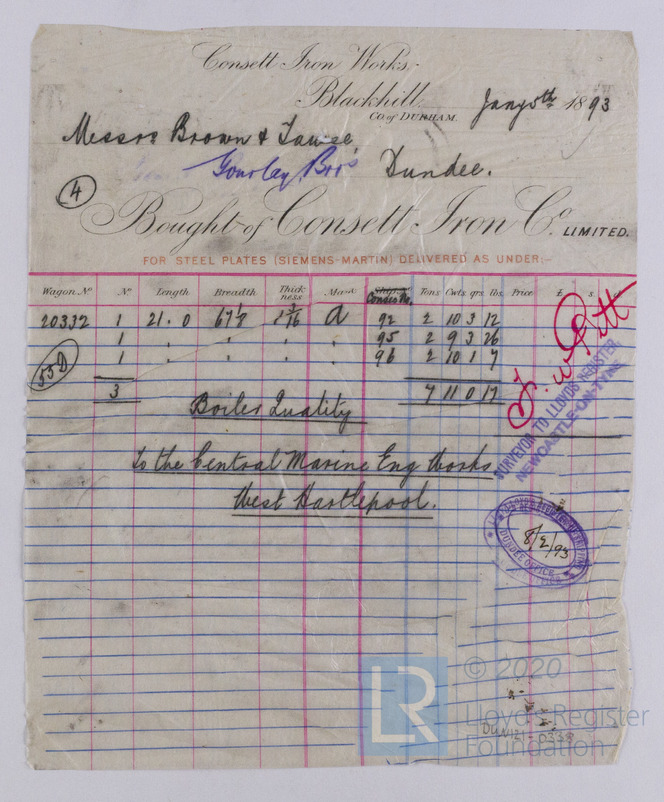 Consett Iron Works,
Blackhill.
Co. of DURHAM.
Jany 5th 1893
Messrs Brown &
Gourlay Bros
Dundee.
4
Bought of Consett Iron Co. LIMITED.
FOR STEEL PLATES (SIEMENS-MARTIN) DELIVERED AS UNDER:-
Wagon No. No. Length Breadth Thickness Mark Tons Cwts. qrs. lbs. Price £ s.
20332 1 21.0 a 92 2 10 3 12
1 " " " " 95 2 9 3 26
1 " " " " 96 2 10 1 7
55D
3 7 11 0 17
Boiler Quality
To the Central Marine Eng Works
West Hartlepool.
SURVEYOR TO LLOYDS REGISTER,
NEWCASTLE-ON-TYNE
8/2/93
DUNDEE OFFICE
LR
© 2020
Lloyd's Register
Foundation